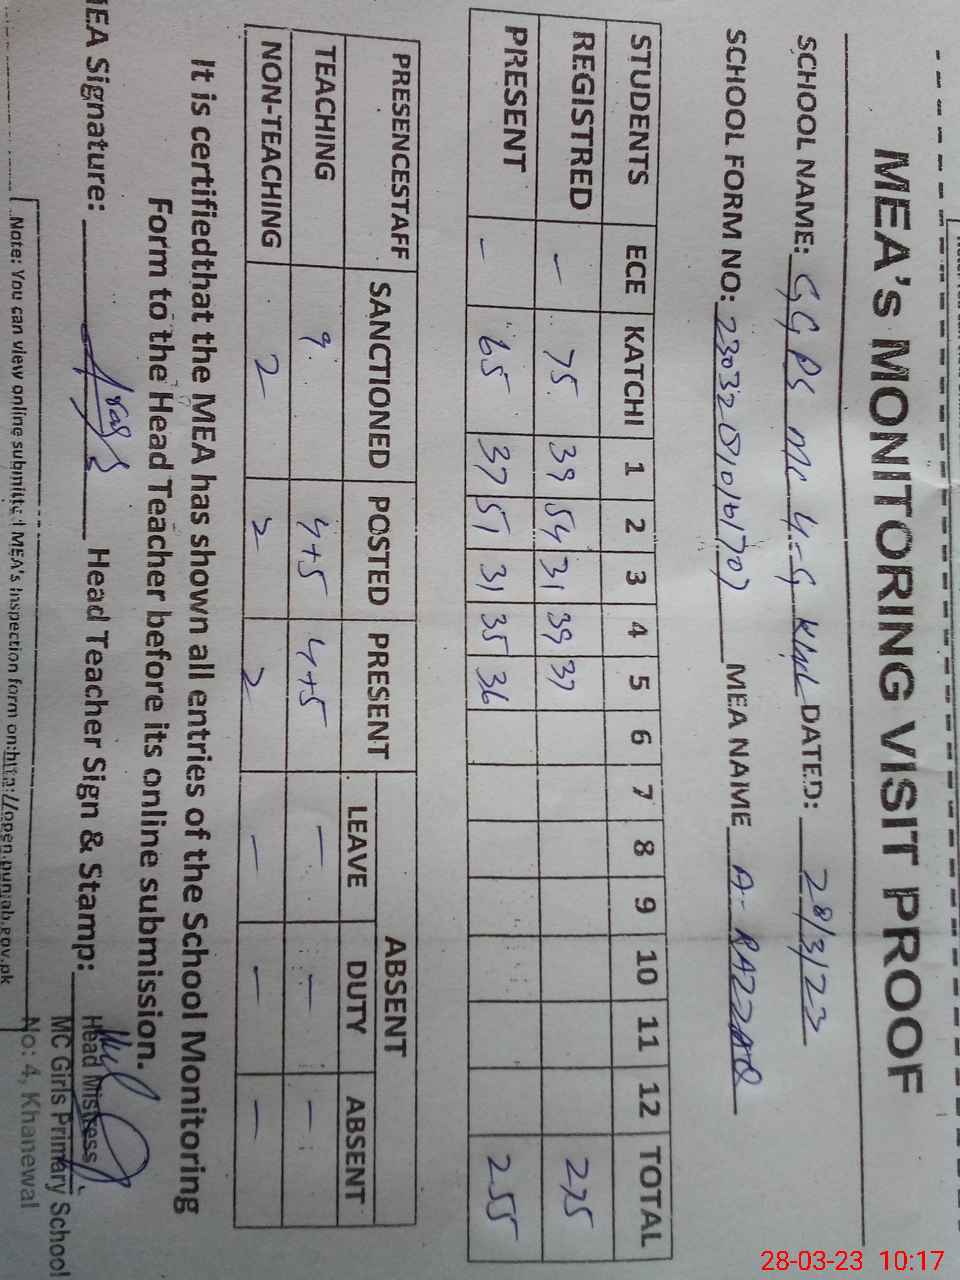 MEA's MONITORING VISIT PROOF
SCHOOL NAME: GGPS MC 4-G KWL DATED: 28/3/23
SCHOOL FORM NO: MEA NAIME A-RAZZAQ
STUDENTS ECE KATCHI 1 2 3 4 5 6 7 8 9 10 11 12 TOTAL
REGISTRED — 75 39 54 31 39 37 275
PRESENT — 65 37 51 31 35 36 255
PRESENCESTAFF SANCTIONED POSTED PRESENT ABSENT
LEAVE DUTY ABSENT
TEACHING 9 4+5 4+5 — — —
NON-TEACHING 2 2 2 — — —
It is certifiedthat the MEA has shown all entries of the School Monitoring
Form to the Head Teacher before its online submission.
MEA Signature: Head Teacher Sign & Stamp:
Head Mistress
MC Girls Primary School
No: 4, Khanewal
Note: You can view online submitted MEA's Inspection form on:http://open.punjab.gov.pk
28-03-23 10:17